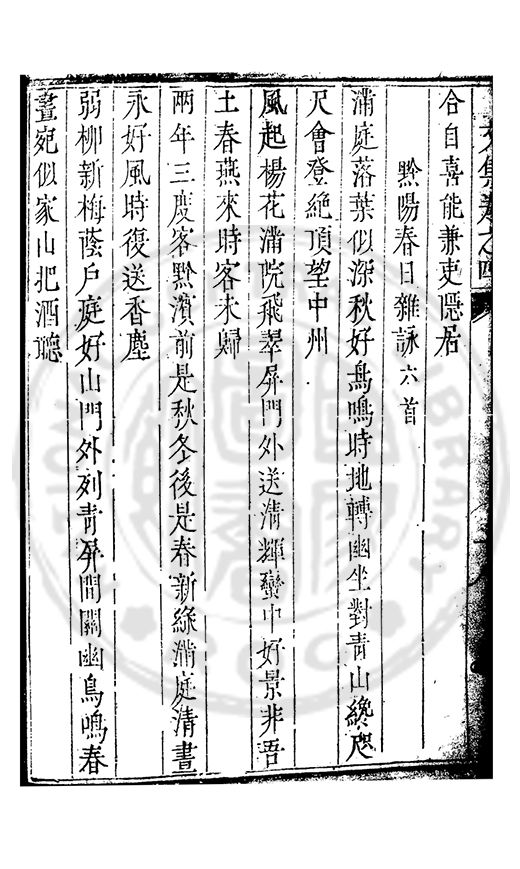 合自喜能兼吏隱居
黔陽春日雜詠六首
滿庭落葉似深秋好鳥鳴時地轉幽坐對青山纔咫
尺會登絶頂望中州
風起楊花滿院飛翠屏門外送清輝蠻中好景非吾
土春燕來時客未歸
兩年三度客黔濱前是秋冬後是春新綠滿庭清晝
永好風時復送香塵
弱柳新梅蔭戶庭好山門外列青屏間關幽鳥鳴春
晝宛似家山把酒聽
文集卷之四